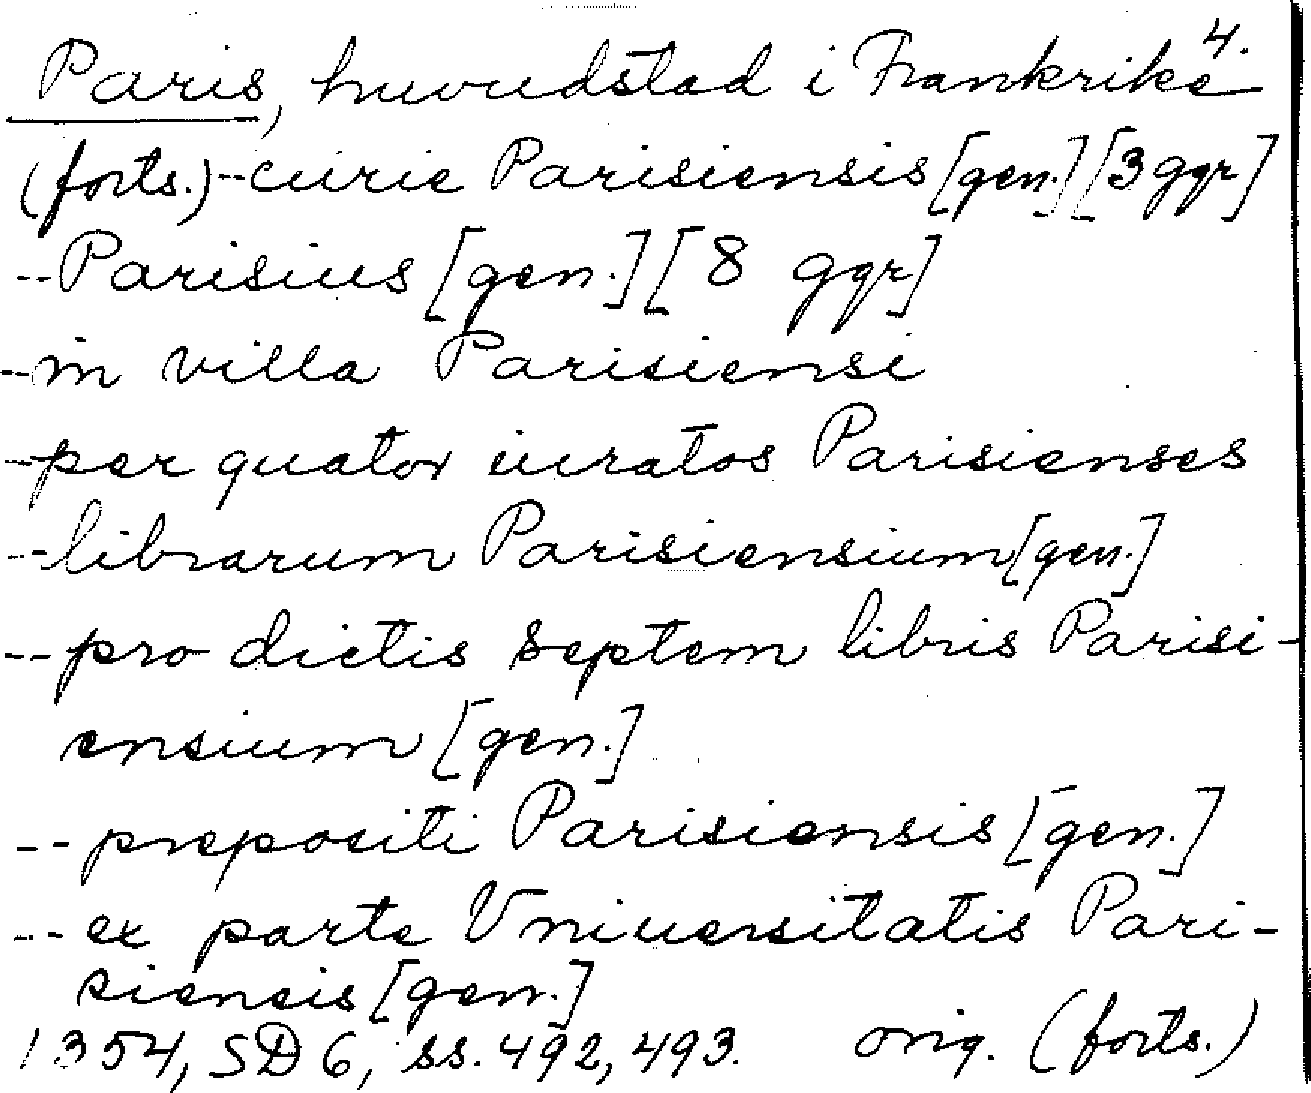 4.
Paris, huvudstad i Frankrike
(forts.) -- curie Parisiensis [gen.] [3 ggr]
-- Parisius [gen.] [8 ggr]
-- in villa Parisiensi
-- per quator iuratos Parisienses
-- librarum Parisiensium [gen.]
-- pro dictis septem libris Parisi-
ensium [gen.]
-- prepositi Parisiensis [gen.]
-- ex parte Vniuersitatis Pari-
siensis [gen.]
1354, SD 6, ss. 492, 493. orig. (forts.)